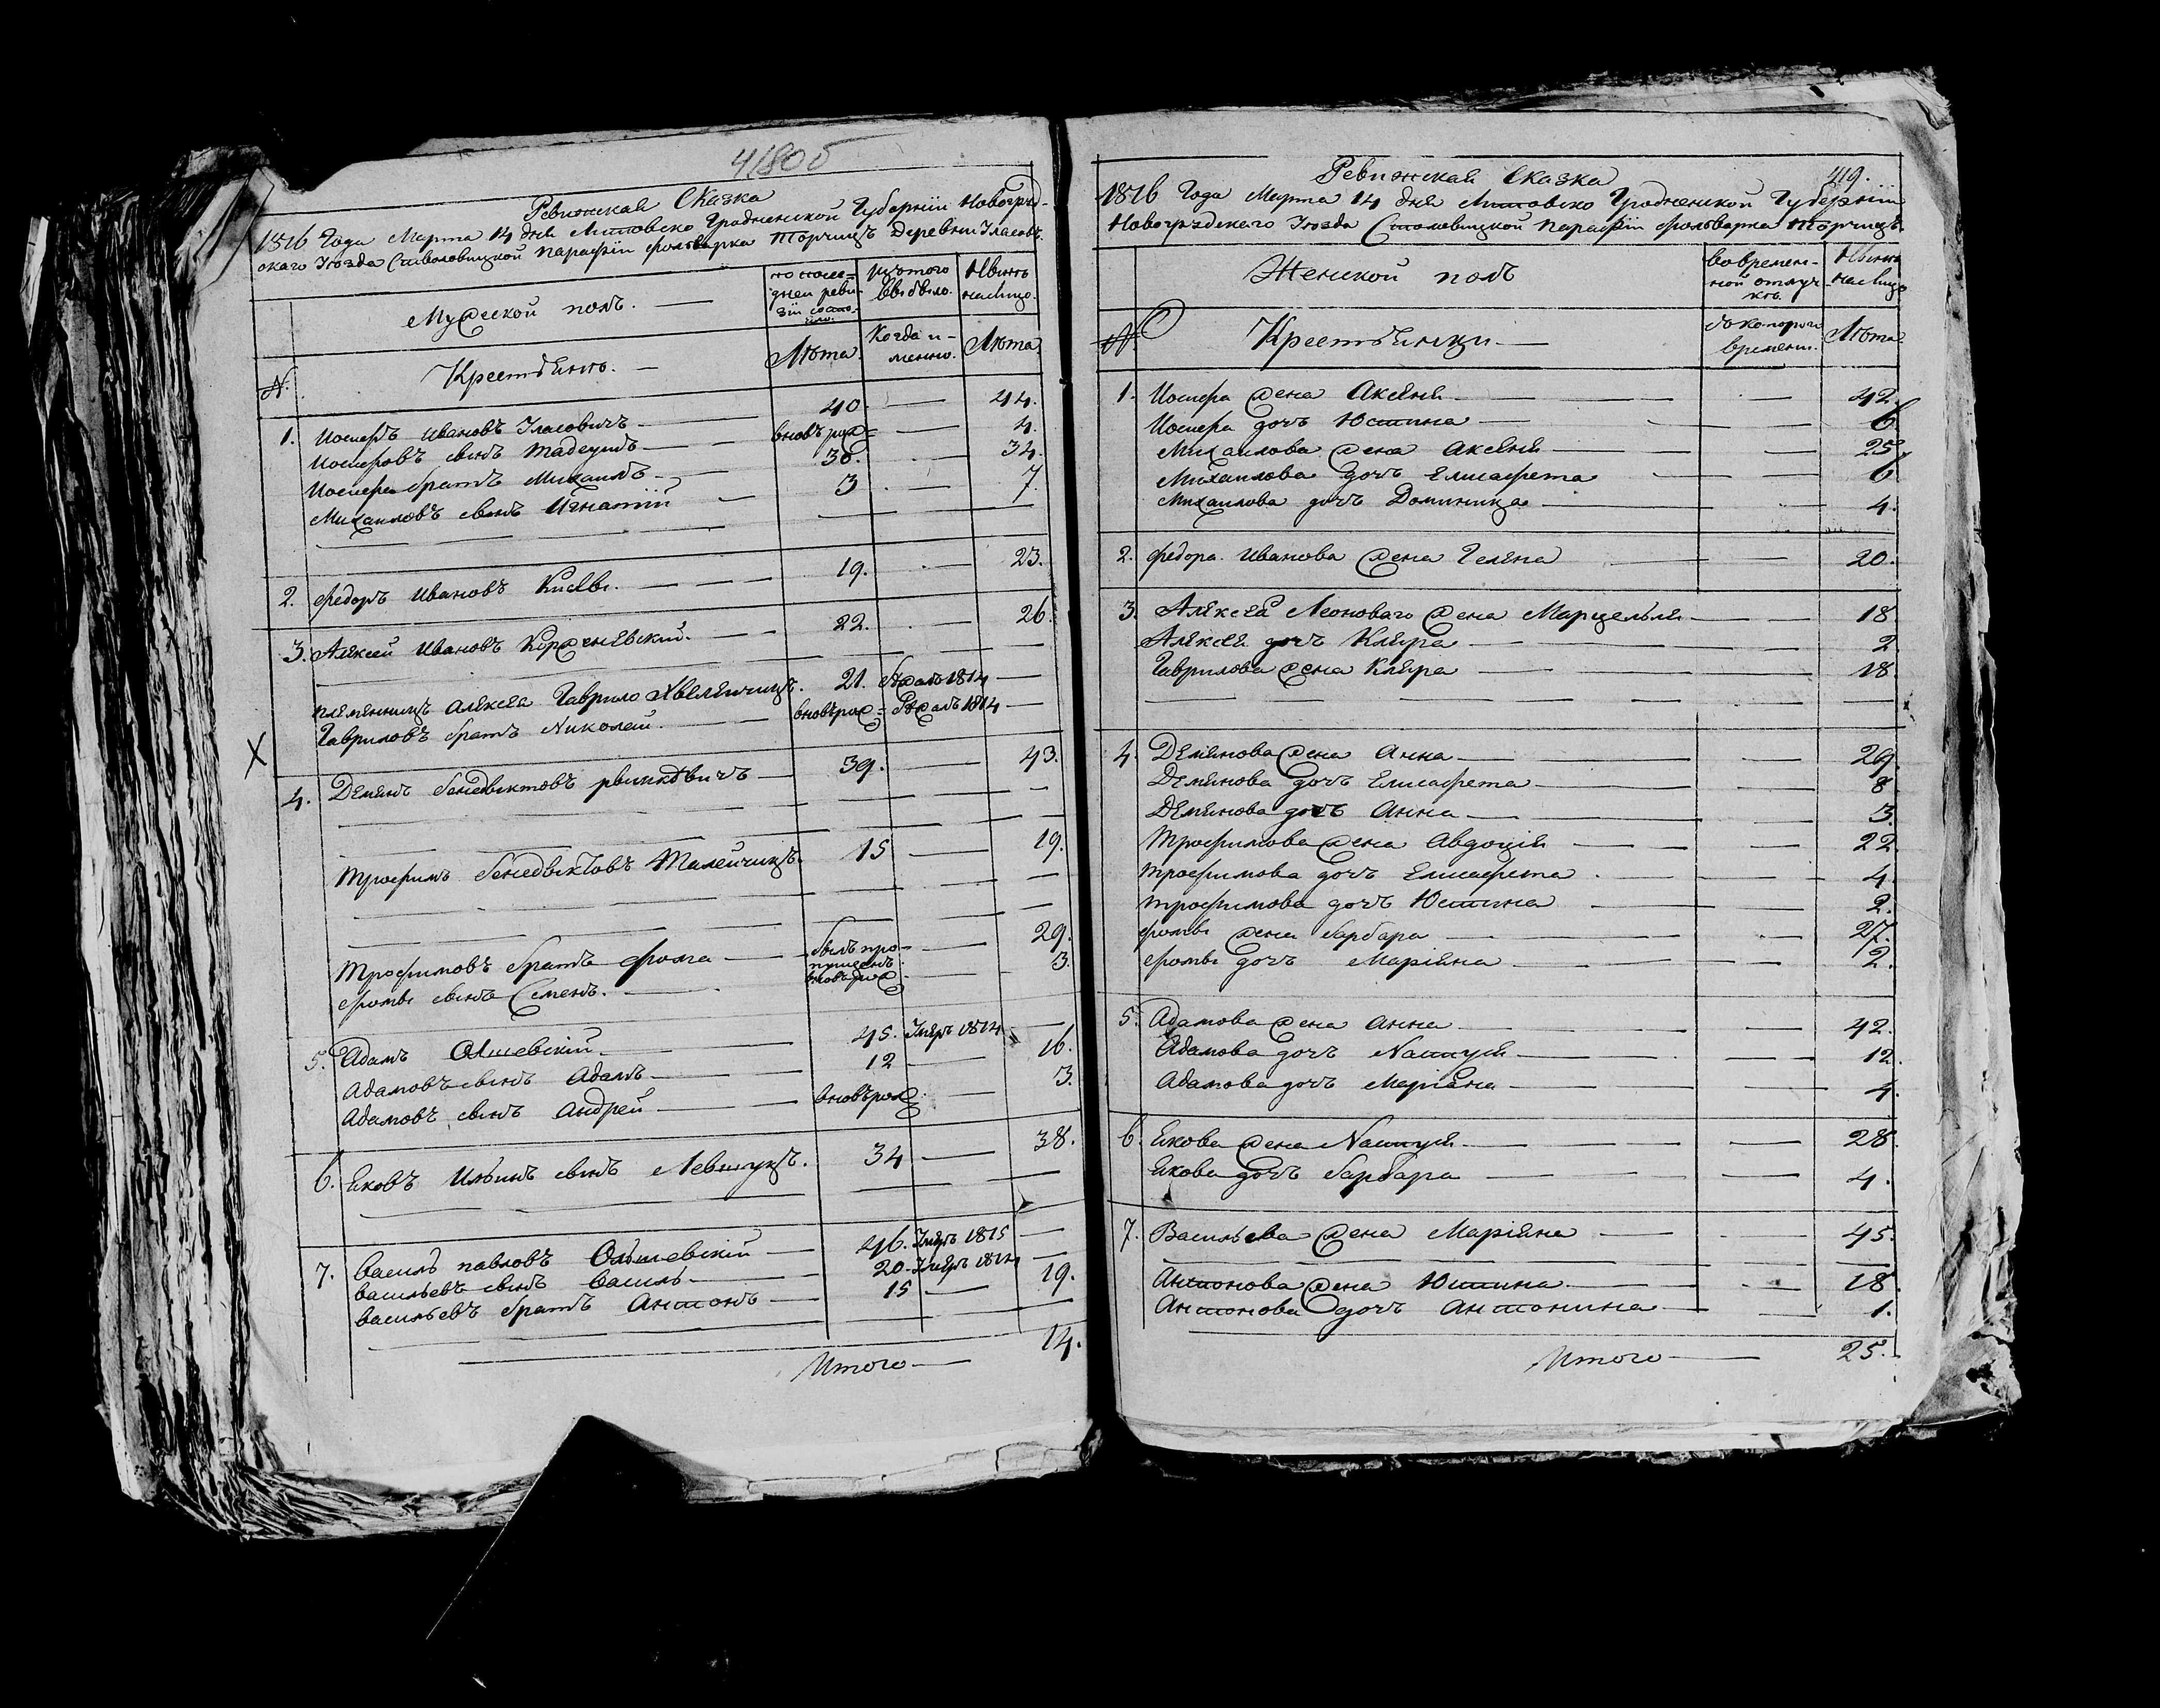 41806
Ревижская Сказка
1816 Года Марта 14 дня Литовско Гродненской Губернiи Новогрудскаго Уезда Столовицкой парафiи фольварка Торчицъ деревни
Мужеской полъ.
по последней ревизiи состояло.
изъ того выбыло.
Ныне налицо.
№
Крестьяне.
Лета.
Когда именно.
Лета.
1. Иосифъ Ивановъ 40. 44.
Иосифовъ сынъ Тадеушъ вновь рож 4.
Иосифа братъ Михаилъ 30. 34.
Михаиловъ сынъ Игнатiй 3 7.
2. Федоръ Ивановъ 19. 23.
3. Алексей Ивановъ Корженевскiй. 22. 26.
племянницъ Алексея Гаврило 21. 1814
Гавриловъ братъ Николай. вновь рож 1814
Х
4. Демянъ Бенедыктовъ 39. 43.
Трофимъ Бенедыктовъ 15 19.
Трофимовъ братъ Фома былъ пропущенъ. 29.
Фомы сынъ Семенъ. вновь рож 3.
5. Адамъ Олшевскiй 45. 1814
Адамовъ сынъ Адамъ 12 16.
Адамовъ сынъ Андрей вновь рож 3.
6. Яковъ Ильинъ сынъ Левшукъ. 34 38.
7. Василь Павловъ Ольшевскiй 46. 1815
Васильевъ сынъ Василь 20. 1814
Васильевъ братъ Антонъ 15 19.
Итого 14.
419.
Ревижская Сказка
1816 Года Марта 14 дня Литовско Гродненской Губернiи
Новогрудскаго Уезда Столовицкой парафiи фольварка Торчицъ.
Женской полъ
во временной отлучке.
Ныне налицо
№
Крестьянки
съ котораго времени.
Лета
1. Иосифа жена Аксеня 42.
Иосифа дочь Юстина 6.
Михаилова жена Аксеня 25
Михаилова дочь Елисафета 6.
Михаилова дочь Доминица 4.
2. Федора Иванова жена Гелена 20.
3. Алексея Леоноваго жена Марцелья 18
Алексея дочь Кляра 2
Гаврилова жена Кляра 18.
4. Демянова жена Анна 29.
Демянова дочь Елисафета 8
Демянова дочь Анна 3.
Трофимова жена Авдоцiя 22
Трофимова дочь Елисафета 4.
Трофимова дочь Юстина 2.
Фомы жена Барбара 27.
Фомы дочь Марiяна 2.
5. Адамова жена Анна 42.
Адамова дочь Настуся 12.
Адамова дочь Марiяна 4.
6. Якова жена Настуся 28.
Якова дочь Барбара 4.
7. Васильева жена Марiяна 45.
Антонова жена Юстина 18.
Антонова дочь Антонина 1.
Итого 25.